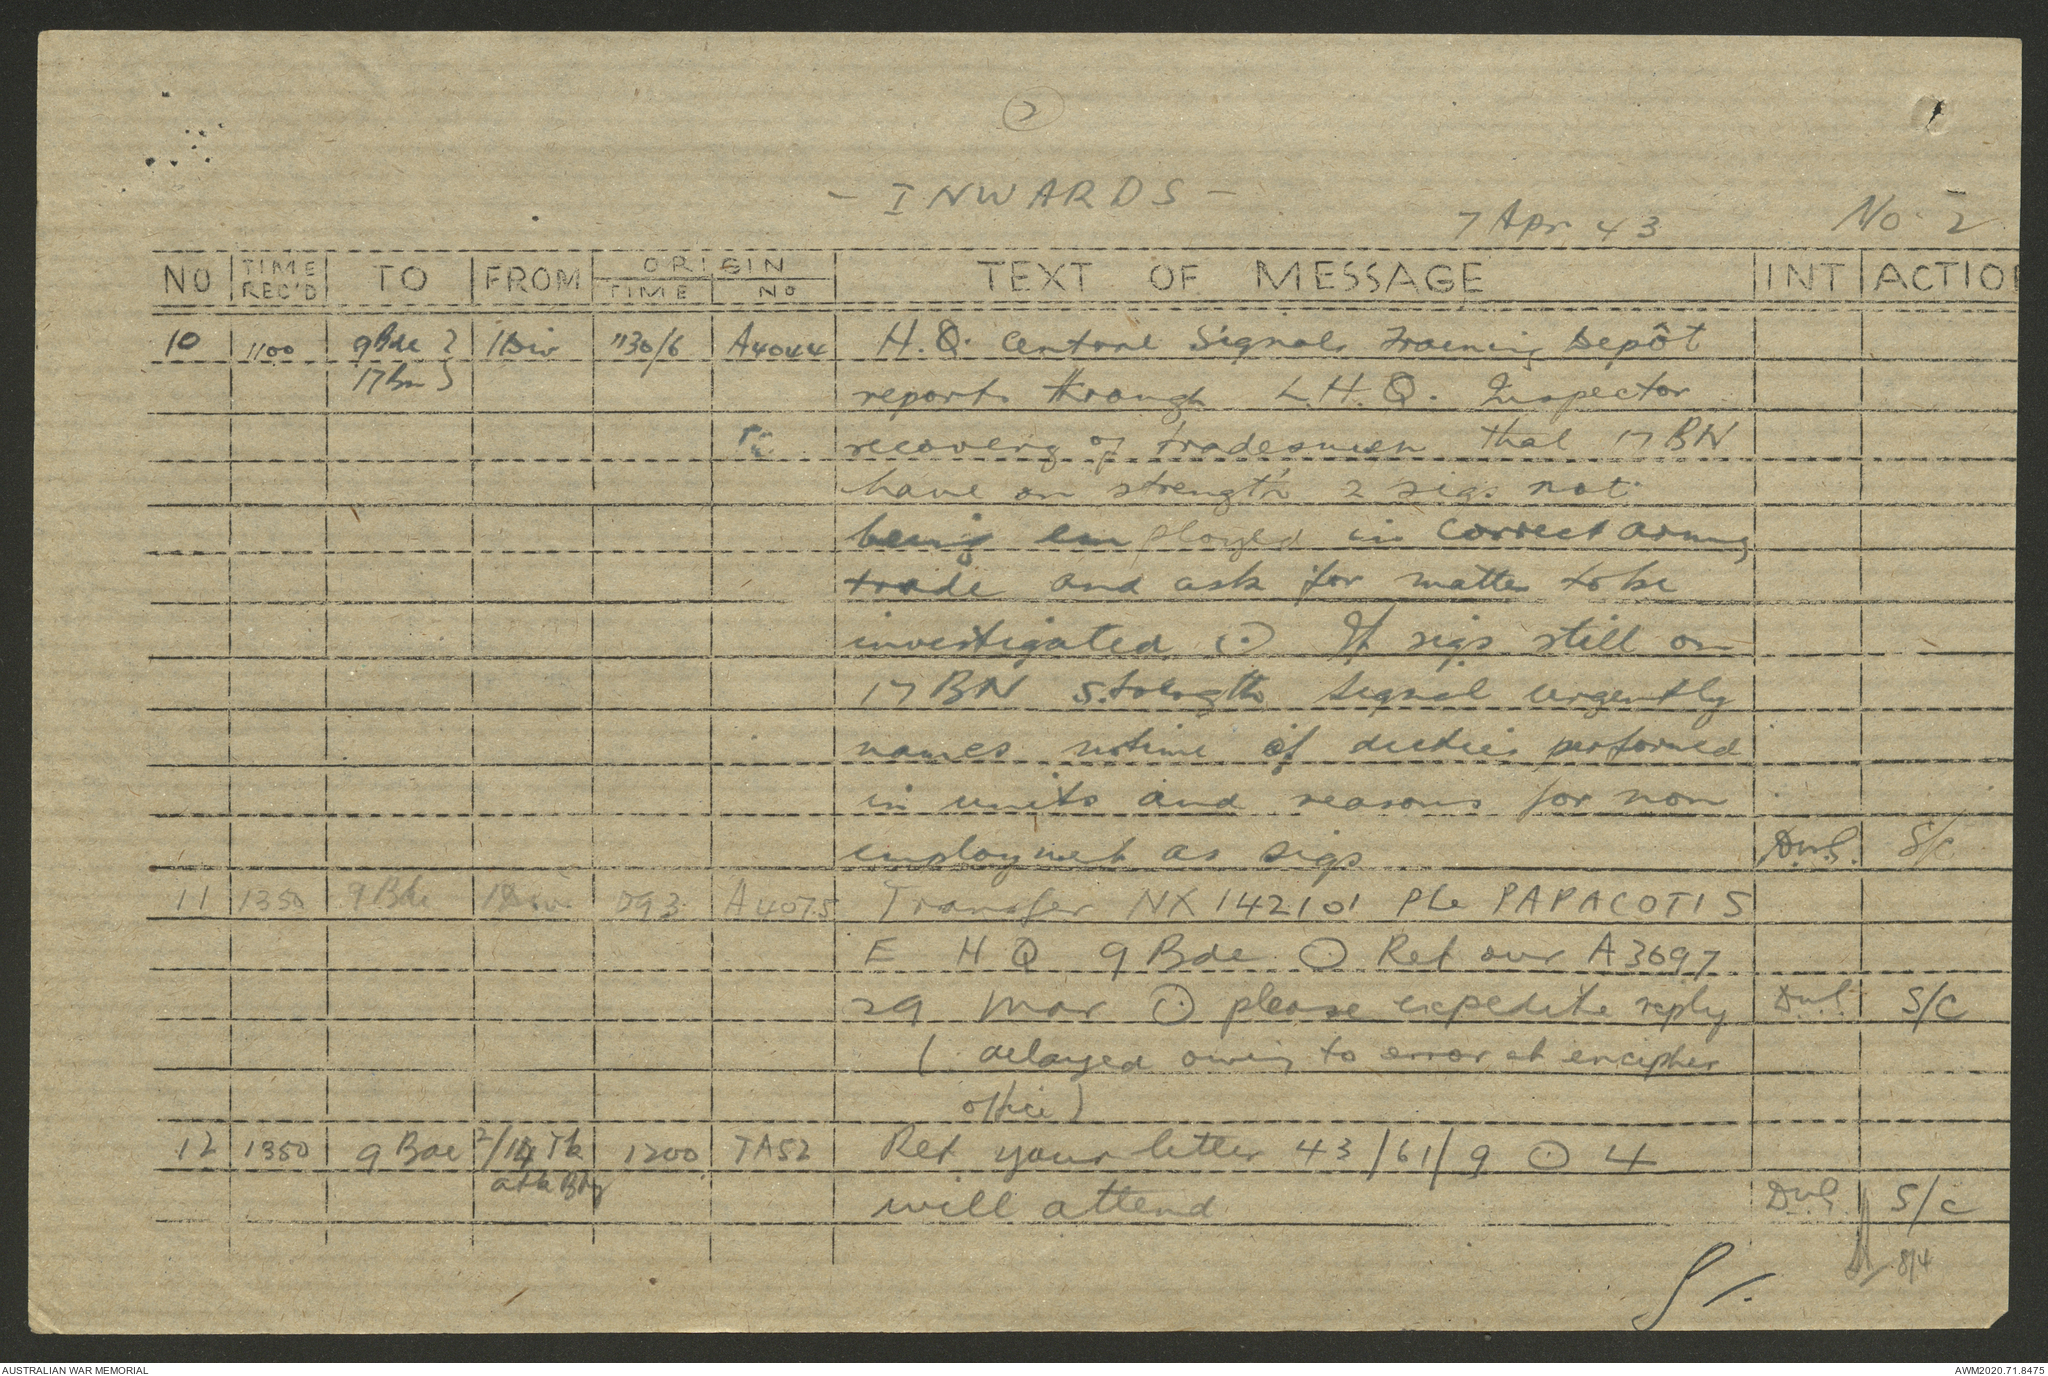 2
- INWARDS -
7 Apr 43 No. 2
NO TIME REC'D TO FROM ORIGIN TIME NO TEXT OF MESSAGE INT ACTION
10 1100 9Bde } 1Div 1130/6 A4044 H.Q. Central Signals Training Depôt
17Bn } reports through L.H.Q. Inspector
recovery of tradesmen that 17 BN
have on strength 2 sigs not
being employed in correct army
trade and ask for matter to be
investigated ⊙ If sigs still on
17 BN strength signal urgently
names nature of duties performed
in units and reasons for non
employment as sigs D.W.G. S/C
11 1350 9Bde 1Div 093 A4075 Transfer NX142101 Pte PAPACOTIS
E HQ 9 Bde ⊙ Ref our A3697
29 Mar ⊙ please expedite reply D.W.G. S/C
( delayed owing to error at encipher
office )
12 1350 9 Bde 2/1 Tk 1200 TA52 Ref your letter 43/61/9 ⊙ 4
atk Bty will attend D.W.G. S/C
8/4
AUSTRALIAN WAR MEMORIAL AWM2020.71.8475